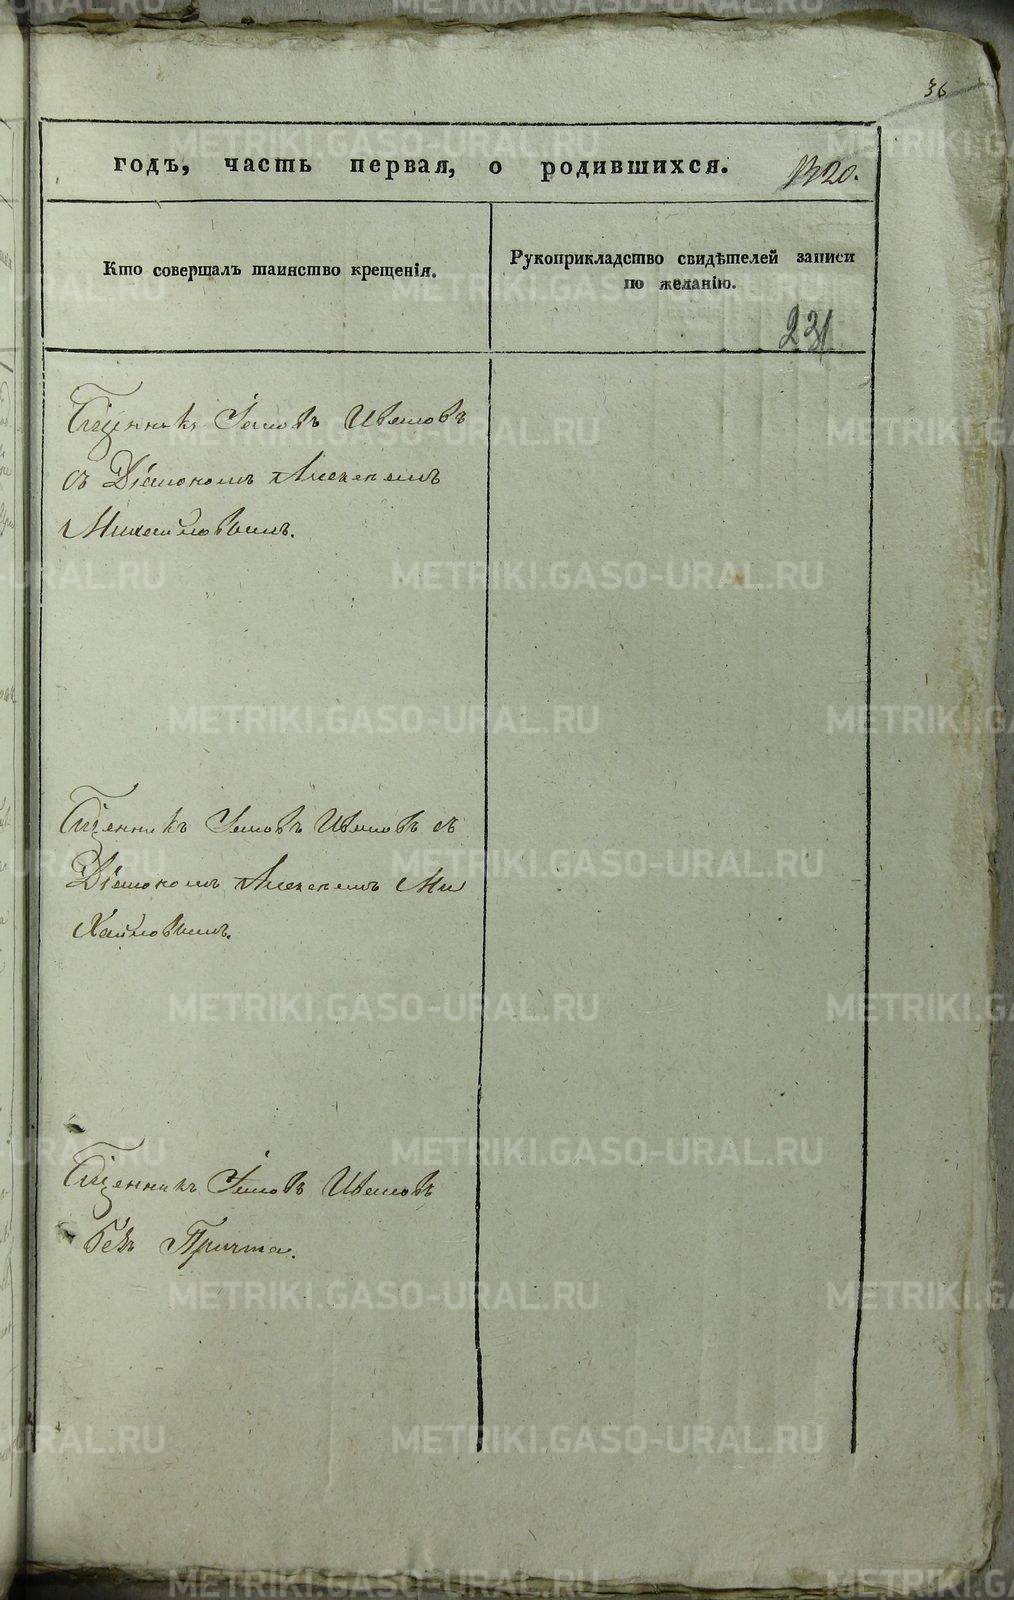 36
годъ, часть первая, о родившихся. 1320.
Кто совершалъ таинство крещенія.
Рукоприкладство свидѣтелей записи
по желанію.
231
Священникъ Іаковъ Ивановъ
съ Діакономъ Алексѣемъ
Михайловымъ.
Священникъ Іаковъ Ивановъ съ
Діакономъ Алексѣемъ Ми
хайловымъ.
Священникъ Іаковъ Ивановъ
безъ Причта.
METRIKI.GASO-URAL.RU